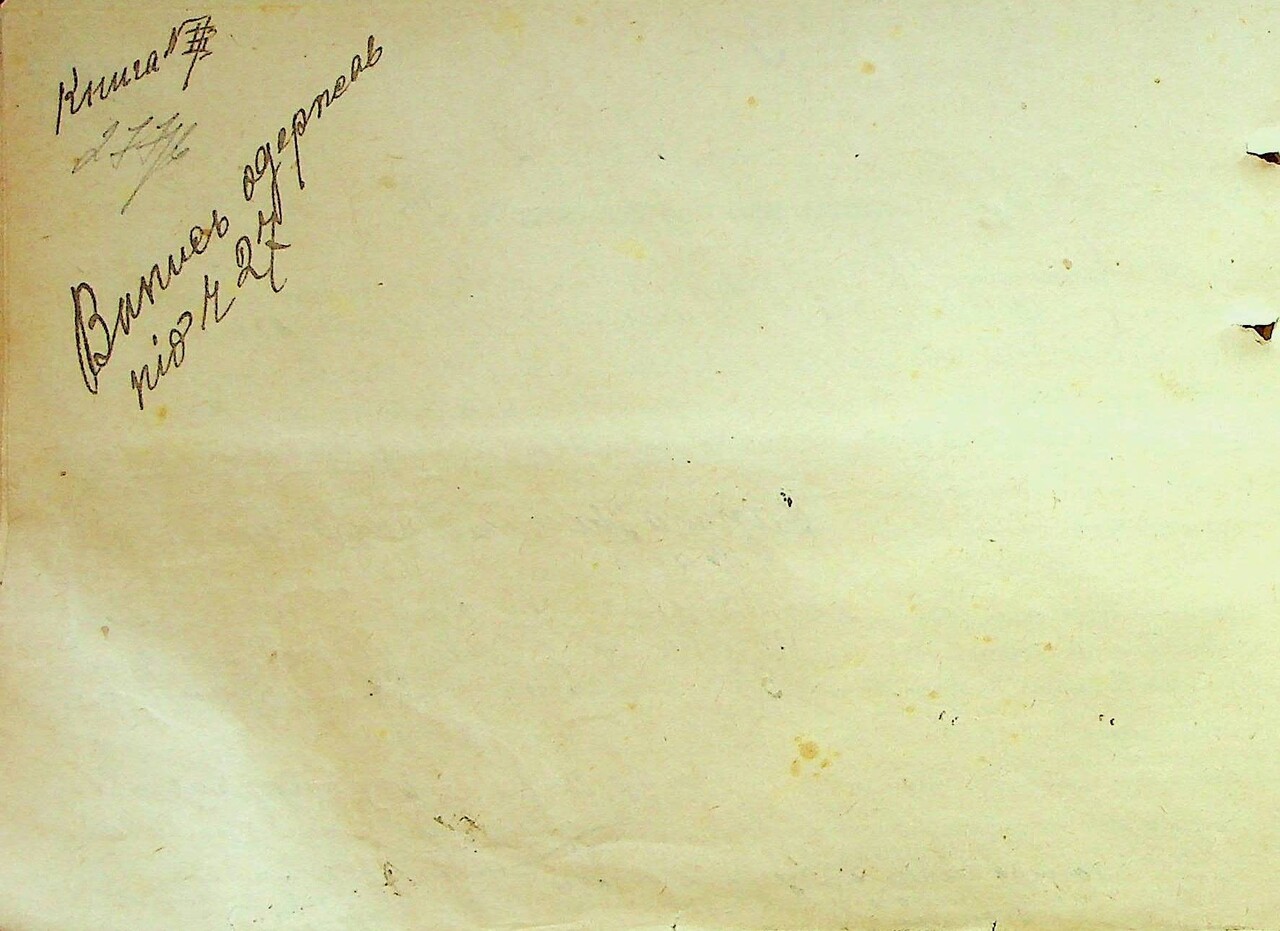 Книга №
Випись одержав
під ч 27